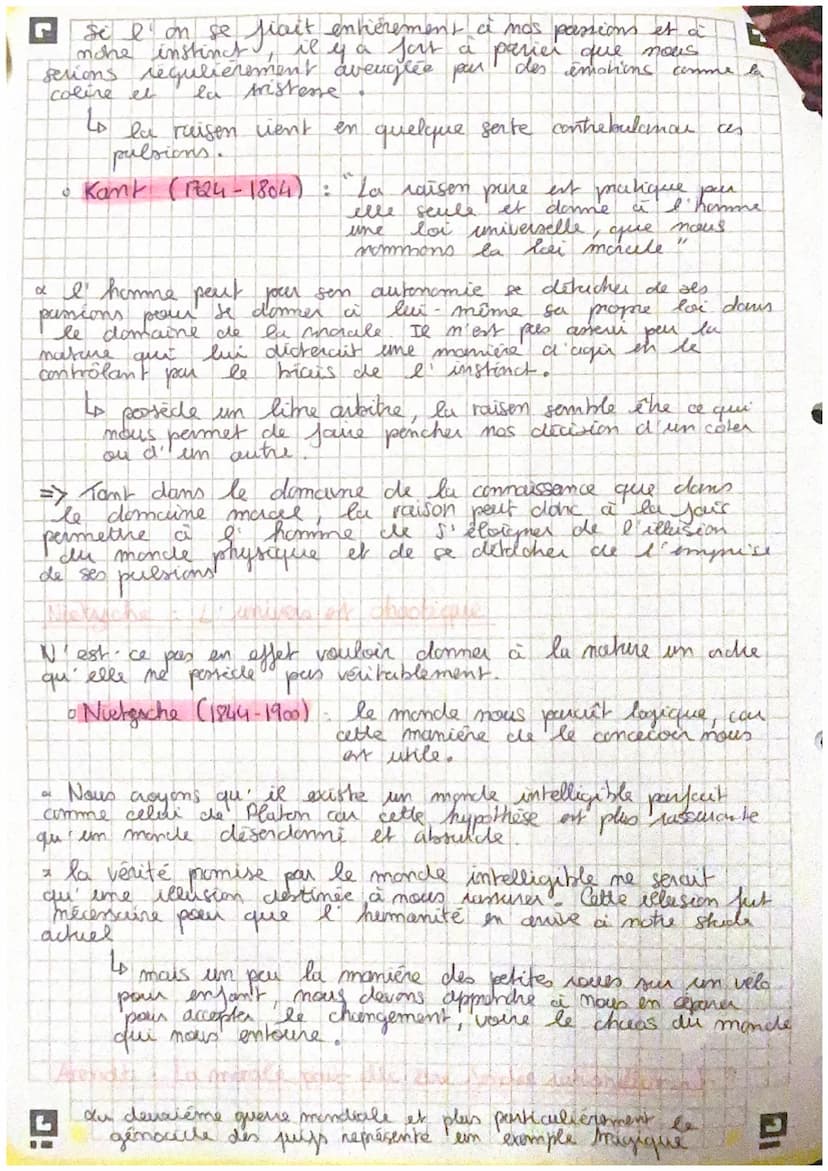 Si l'on se fiait entièrement à nos passions et à
notre instinct, il y a fort à parier que nous
serions régulièrement aveuglée par des émotions comme la
colère et la tristesse.
↳ la raison vient en quelque sorte contrebalancer ces
pulsions.
◦ Kant (1724-1804) : "La raison pure est pratique par
elle seule et donne à l'homme
une loi universelle, que nous
nommons la loi morale"
∝ l'homme peut par son autonomie se détacher de ses
passions pour se donner à lui-même sa propre loi dans
le domaine de la morale. Il n'est pas asservi par la
nature qui lui dicterait une manière d'agir en le
contrôlant par le biais de l'instinct.
↳ possède un libre arbitre, la raison semble être ce qui
nous permet de faire pencher nos décision d'un côter
ou d'un autre.
=> Tant dans le domaine de la connaissance que dans
le domaine moral, la raison peut donc à la fois
permettre à l'homme de s'éloigner de l'illusion
du monde physique et de se détacher de l'emprise
de ses pulsions
Nietzsche : L'univers est chaotique
N'est-ce pas en effet vouloir donner à la nature un ordre
qu'elle ne possède pas véritablement.
◦ Nietzsche (1844-1900) : le monde nous paraît logique, car
cette manière de le concevoir nous
est utile.
∝ Nous croyons qu'il existe un monde intelligible parfait
comme celui de Platon car cette hypothèse est plus rassurante
qu'un monde désordonné et absurde.
∝ la vérité promise par le monde intelligible ne serait
qu'une illusion destinée à nous rassurer. Cette illusion fut
nécessaire pour que l'humanité en arrive à notre stade
actuel
↳ mais un peu la manière des petites roues sur un vélo
pour enfant, nous devons apprendre à nous en séparer
pour accepter le changement, voire le chaos du monde
qui nous entoure.
Arendt : La morale peut-elle être fondée rationnellement ?
La deuxième guerre mondiale et plus particulièrement le
génocide des juifs représente un exemple tragique